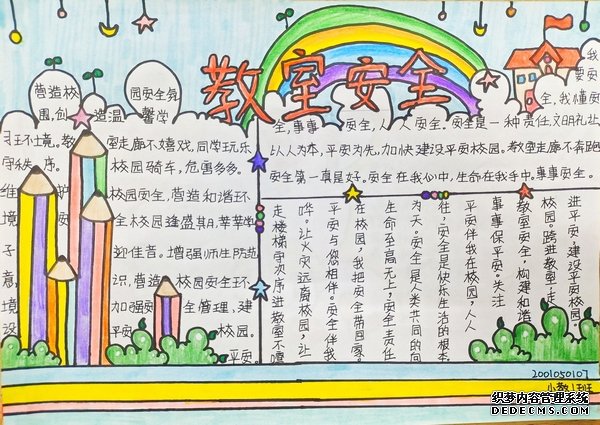 教室安全
营造校 园安全氛
围,创 造温 馨学
习环境。教 室走廊不嬉戏,同学玩乐
守秩序。 校园骑车,危害多多。
维 护 校园安全,营造和谐环
境 全校园逢盛其日,莘莘学
子 迎佳音。增强师生防范
意 识,营造 校园安全环
境 加强安 全管理、建
设 平安 校园。
平安
我
要安
全,我懂安
全,事事 安全,人人安全。安全是一种责任,文明礼让
以人为本,平安为先,加快建设平安校园。教室走廊不奔跑
安全第一真是好。安全在我心中,生命在我手中。事事安全。
进平安,建设平安校园
校园。跨进教室,走
教室安全,构建和谐
事事保平安。关注
平安伴我在校园,人人
往,安全是快乐生活的根本
为天。安全是人类共同的向
生命至高无上,安全责任
在校园,我把安全带回家。
平安与您相伴。安全伴我
哗。让火灾远离校园,让
走楼梯守次序,进教室不喧
2001050107
小教1班
织梦内容管理系统
DEDECMS.COM